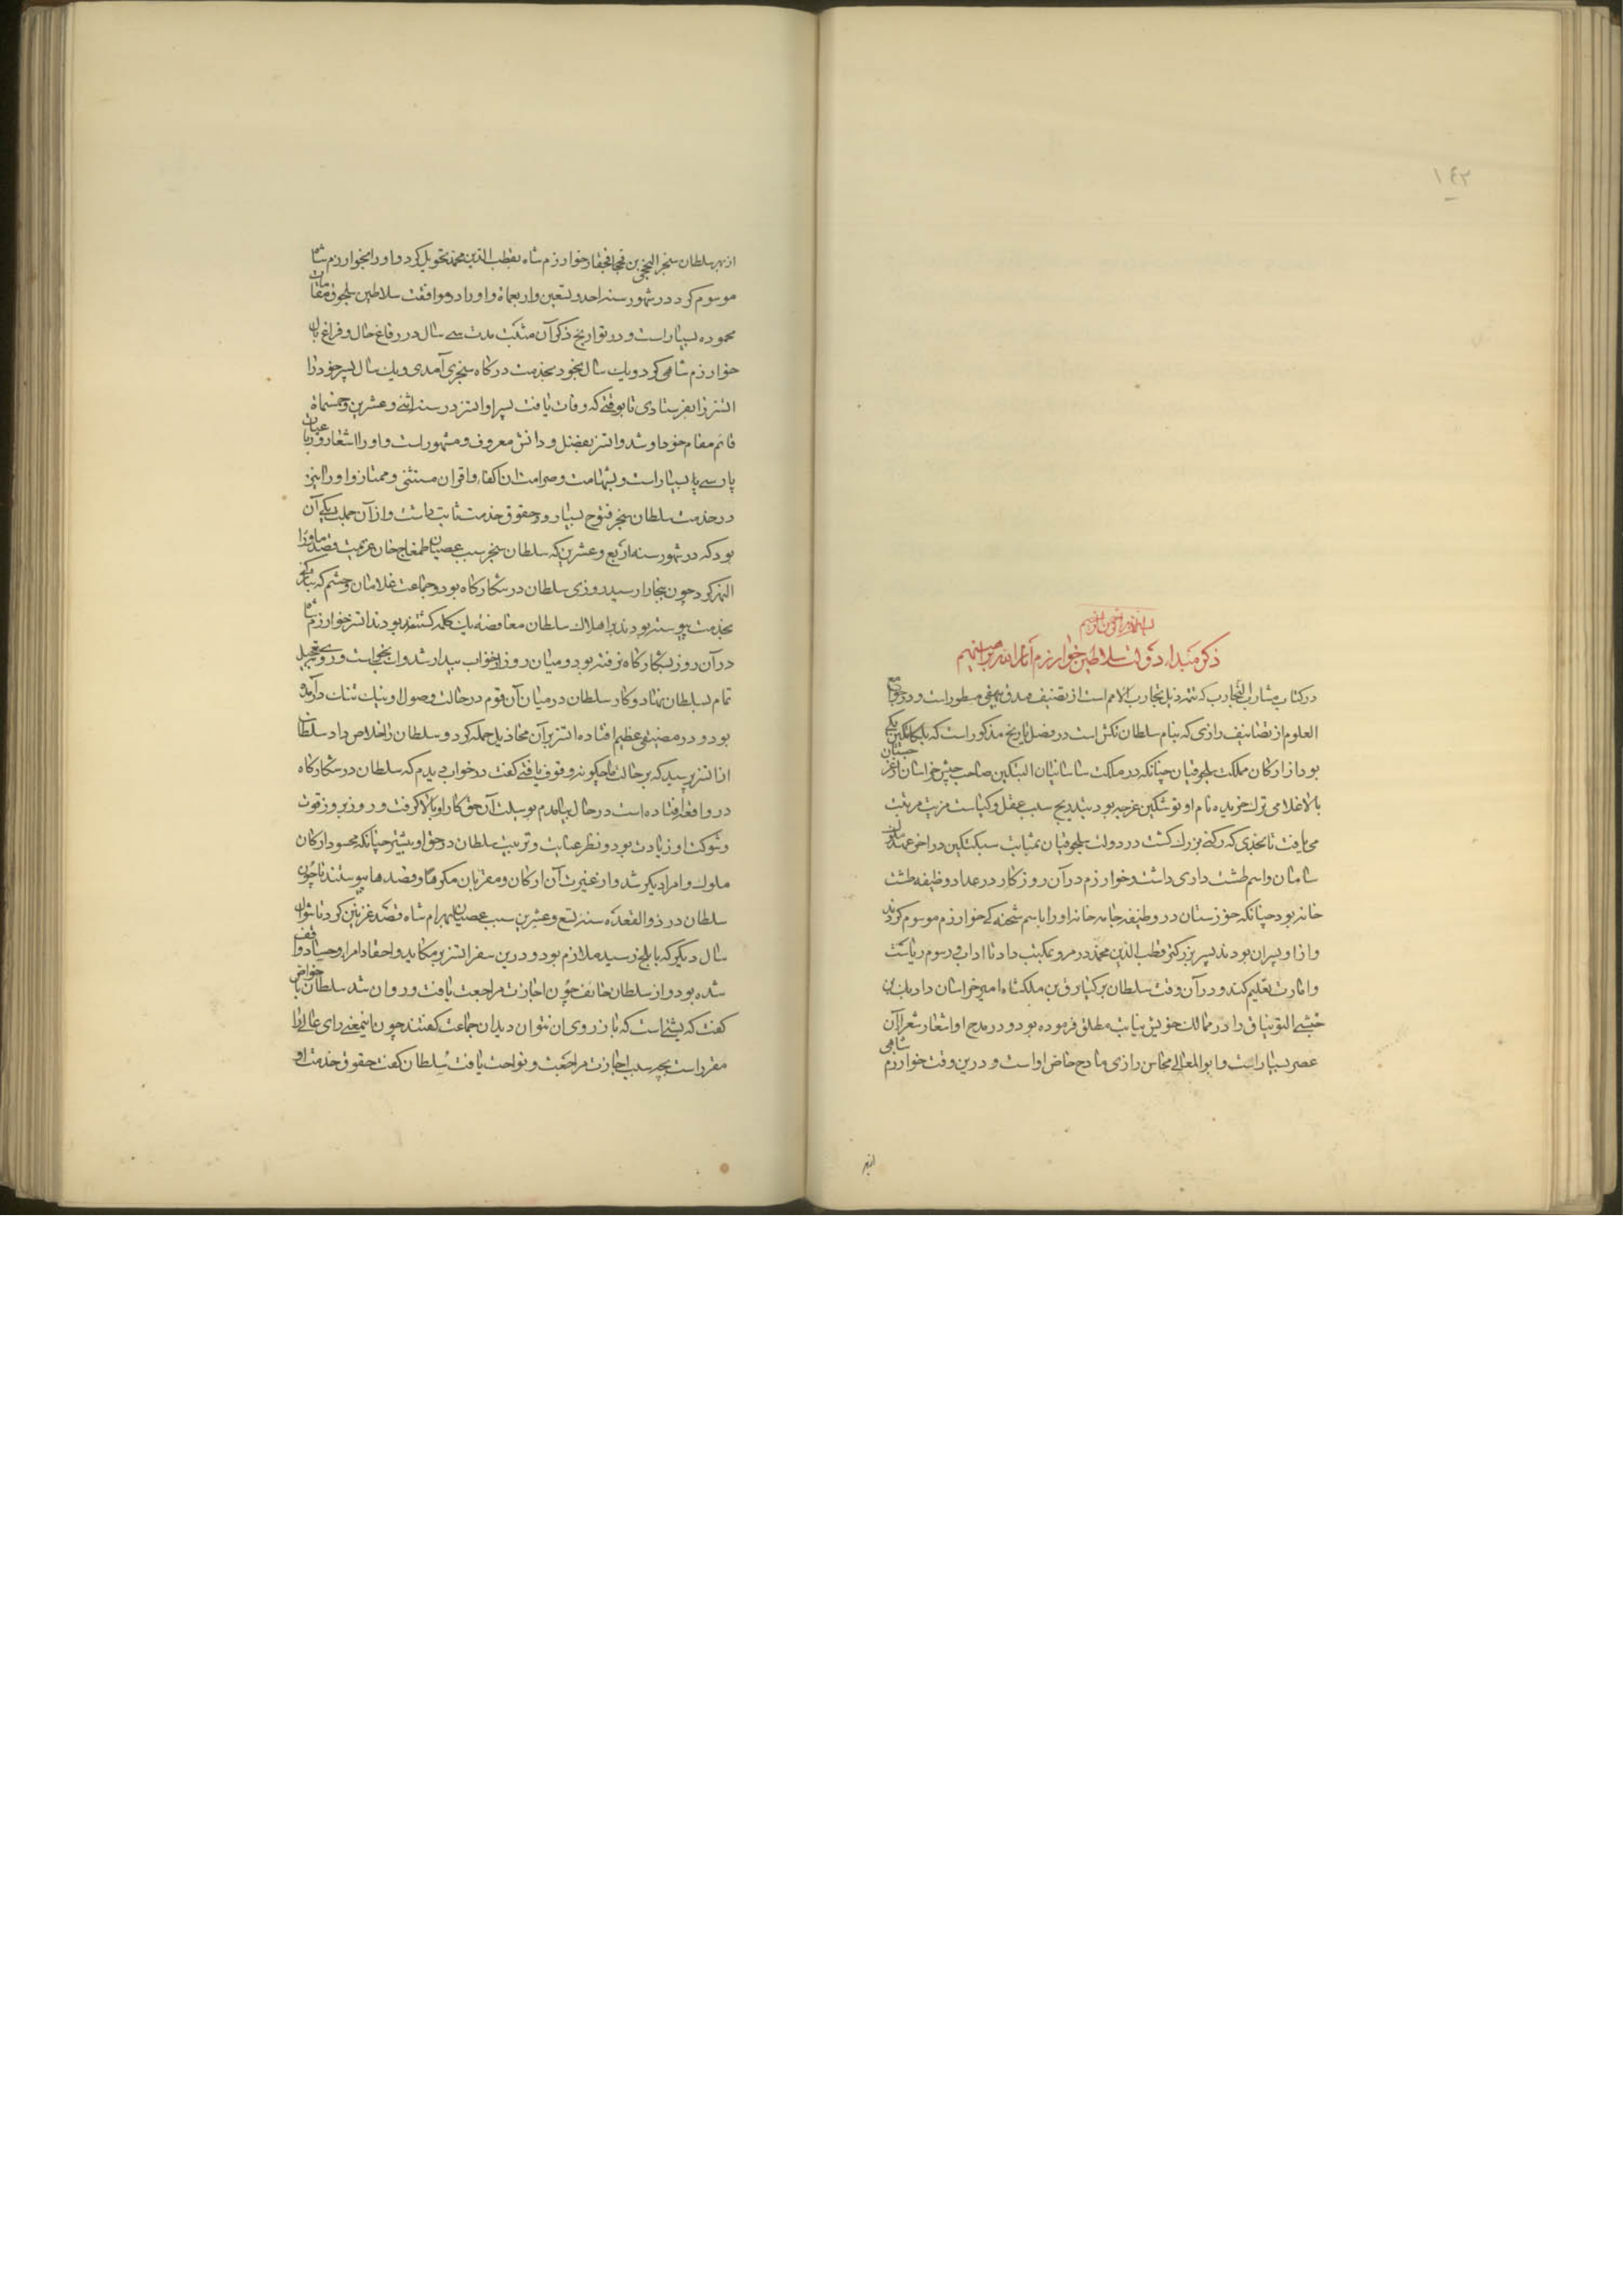 ١٤٣
بسم الله الرحمن الرحیم
ذکر مبداء دولت سلاطین خوارزم انار الله براهینهم
در کتاب مشارب التجارب که تتمه ذیل تجارب الامم است از تصنیف صدق بیهقی مسطور است و در جوامع
العلوم از تصانیف رازی که بنام سلطان تکش است در فصل تاریخ مذکور است که بلکاتکین یکی
بود از ارکان مملکت سلجوقیان چنانکه در مملکت ساسانیان البتکین صاحب جیش خراسان از غرجستان
بالا غلامی ترک خریده نام او نوشتکین غرجه بود بتدریج سبب عقل و کیاست مزیت مرتبت
می یافت تا بحدی که رکنی بزرک کشت در دولت سلجوقیان بمثابت سبکتکین در اخر عهد ملوک
سامان و اسم طشت داری داشت و خوارزم در آن روزکار در عداد وظیفه طشت
خانه بود چنانکه خوزستان در وظیفه جامه خانه او را باسم شحنه کی خوارزم موسوم کردند
و از او پسران بودند پسر بزرکتر قطب الدین محمد در مرو بمکتب داد تا اداب و رسوم ریاست
و امارت تعلیم کند و در آن وقت سلطان برکیارق بن ملکشاه امیر خراسان داد بک بن
حبشی التونتاق را در ممالک خویش نیابت مطلق فرموده بود و در مدح او اشعار شعراء آن
عصر بسیار است و ابو المعالی نحاس رازی مادح خاص او است و درین وقت خوارزم شاهی
از بهر
از بهر سلطان سنجر النجی بن قجقار خوارزم شاه بقطب الدین محمد تحویل کرد و او را بخوارزم شاه
موسوم کرد در شهور سنه احد و تسعین و اربعمائة و او را در موافقت سلاطین سلجوق مقامات
محموده بسیار است و در تواریخ ذکر آن مثبت مدت سی سال در رفاغ حال و فراغ بال
خوارزم شاهی کرد و یک سال بخود بخدمت درکاه سنجری آمدی و یک سال پسر خود را
اتسز را بفرستادی تا بوقتی که وفات یافت پسر او اتسز در سنه اثنی و عشرین و خمسمائة
قائم مقام خود او شد و اتسز بفضل و دانش معروف و مشهور است و او را اشعار و رباعیات
پارسی بسیار است و بشهامت و صرامت از اکفاء و اقران مستثنی و ممتاز و او را نیز
در خدمت سلطان سنجر فتوح بسیار و حقوق خدمت ثابت داشت و از آن جملت یکی آن
بود که در شهور سنه اربع و عشرین که سلطان سنجر سبب عصیان طمغاج خان عزیمت قصد ماوراء
النهر کرد چون ببخارا رسید روزی سلطان در شکارکاه بود و جماعت غلامان و حشم که بتازکی
بخدمت پیوسته بودند بر اهلاک سلطان مغافصة یک کلمه کشته بودند اتسز خوارزم شاه
در آن روز بشکارکاه نرفته بود و میان روز از خواب بیدار شد و اسب بخواست و روی بتعجیل
تمام بسلطان نهاد و کار سلطان در میان آن قوم در حالت وصول او بنیک تنک درآمده
بود و در مضیقی عظیم افتاده اتسز بر آن مخاذیل حمله کرد و سلطان را خلاص داد سلطان
از اتسز پرسید که بر حالت ما چکونه وقوف یافتی کفت در خواب دیدم که سلطان در شکارکاه
در واقعه افتاده است در حال بیامدم بوسیلت آن حق کار او بالا کرفت و روز بروز قوت
و شوکت او زیادت بود و نظر عنایت و تربیت سلطان در حق او بیشتر چنانکه محسود ارکان
ملوک و امرا دیکر شد و از غیرت آن ارکان و مقربان مکرها و قصدها پیوستند تا چون
سلطان در ذو القعده سنه تسع و عشرین سبب عصیان بهرام شاه قصد غزنین کرد تا شوال
سال دیکر که با بلخ رسید ملازم بود و درین سفر اتسز بر مکاید و احقاد امرا و حساد واقف
شده بود و از سلطان خایف چون اجازت مراجعت یافت و روان شد سلطان با خواص
کفت که پشتی است که باز روی آن نتوان دید آن جماعت کفتند چون این معنی رای عالی را
مقرر است بچه سبب اجازت مراجعت و نواخت یافت سلطان کفت حقوق خدمت او